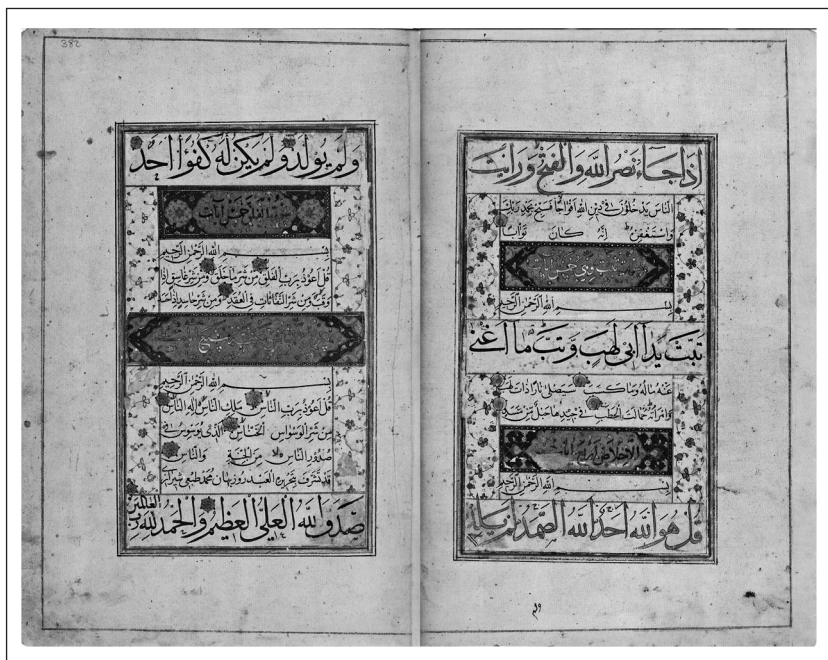 اذا جاء نصر الله والفتح ورايت
الناس يدخلون في دين الله افواجا فسبح بحمد ربك
واستغفره انه كان توابا
بسم الله الرحمن الرحيم
تبت يدا ابي لهب وتب ما اغنى
عنه ماله وما كسب سيصلى نارا ذات لهب
وامراته حمالة الحطب في جيدها حبل من مسد
الاخلاص اربع آيات
بسم الله الرحمن الرحيم
قل هو الله احد الله الصمد لم يلد
382
ولم يولد ولم يكن له كفوا احد
سورة الفلق خمس آيات
بسم الله الرحمن الرحيم
قل اعوذ برب الفلق من شر ما خلق ومن شر غاسق اذا
وقب ومن شر النفاثات في العقد ومن شر حاسد اذا حسد
بسم الله الرحمن الرحيم
قل اعوذ برب الناس ملك الناس اله الناس
من شر الوسواس الخناس الذي يوسوس في
صدور الناس من الجنة والناس
قد تشرف بتحرير العبد روزبهان محمد طبعي شيرازي
صدق الله العلي العظيم والحمد لله رب العالمين